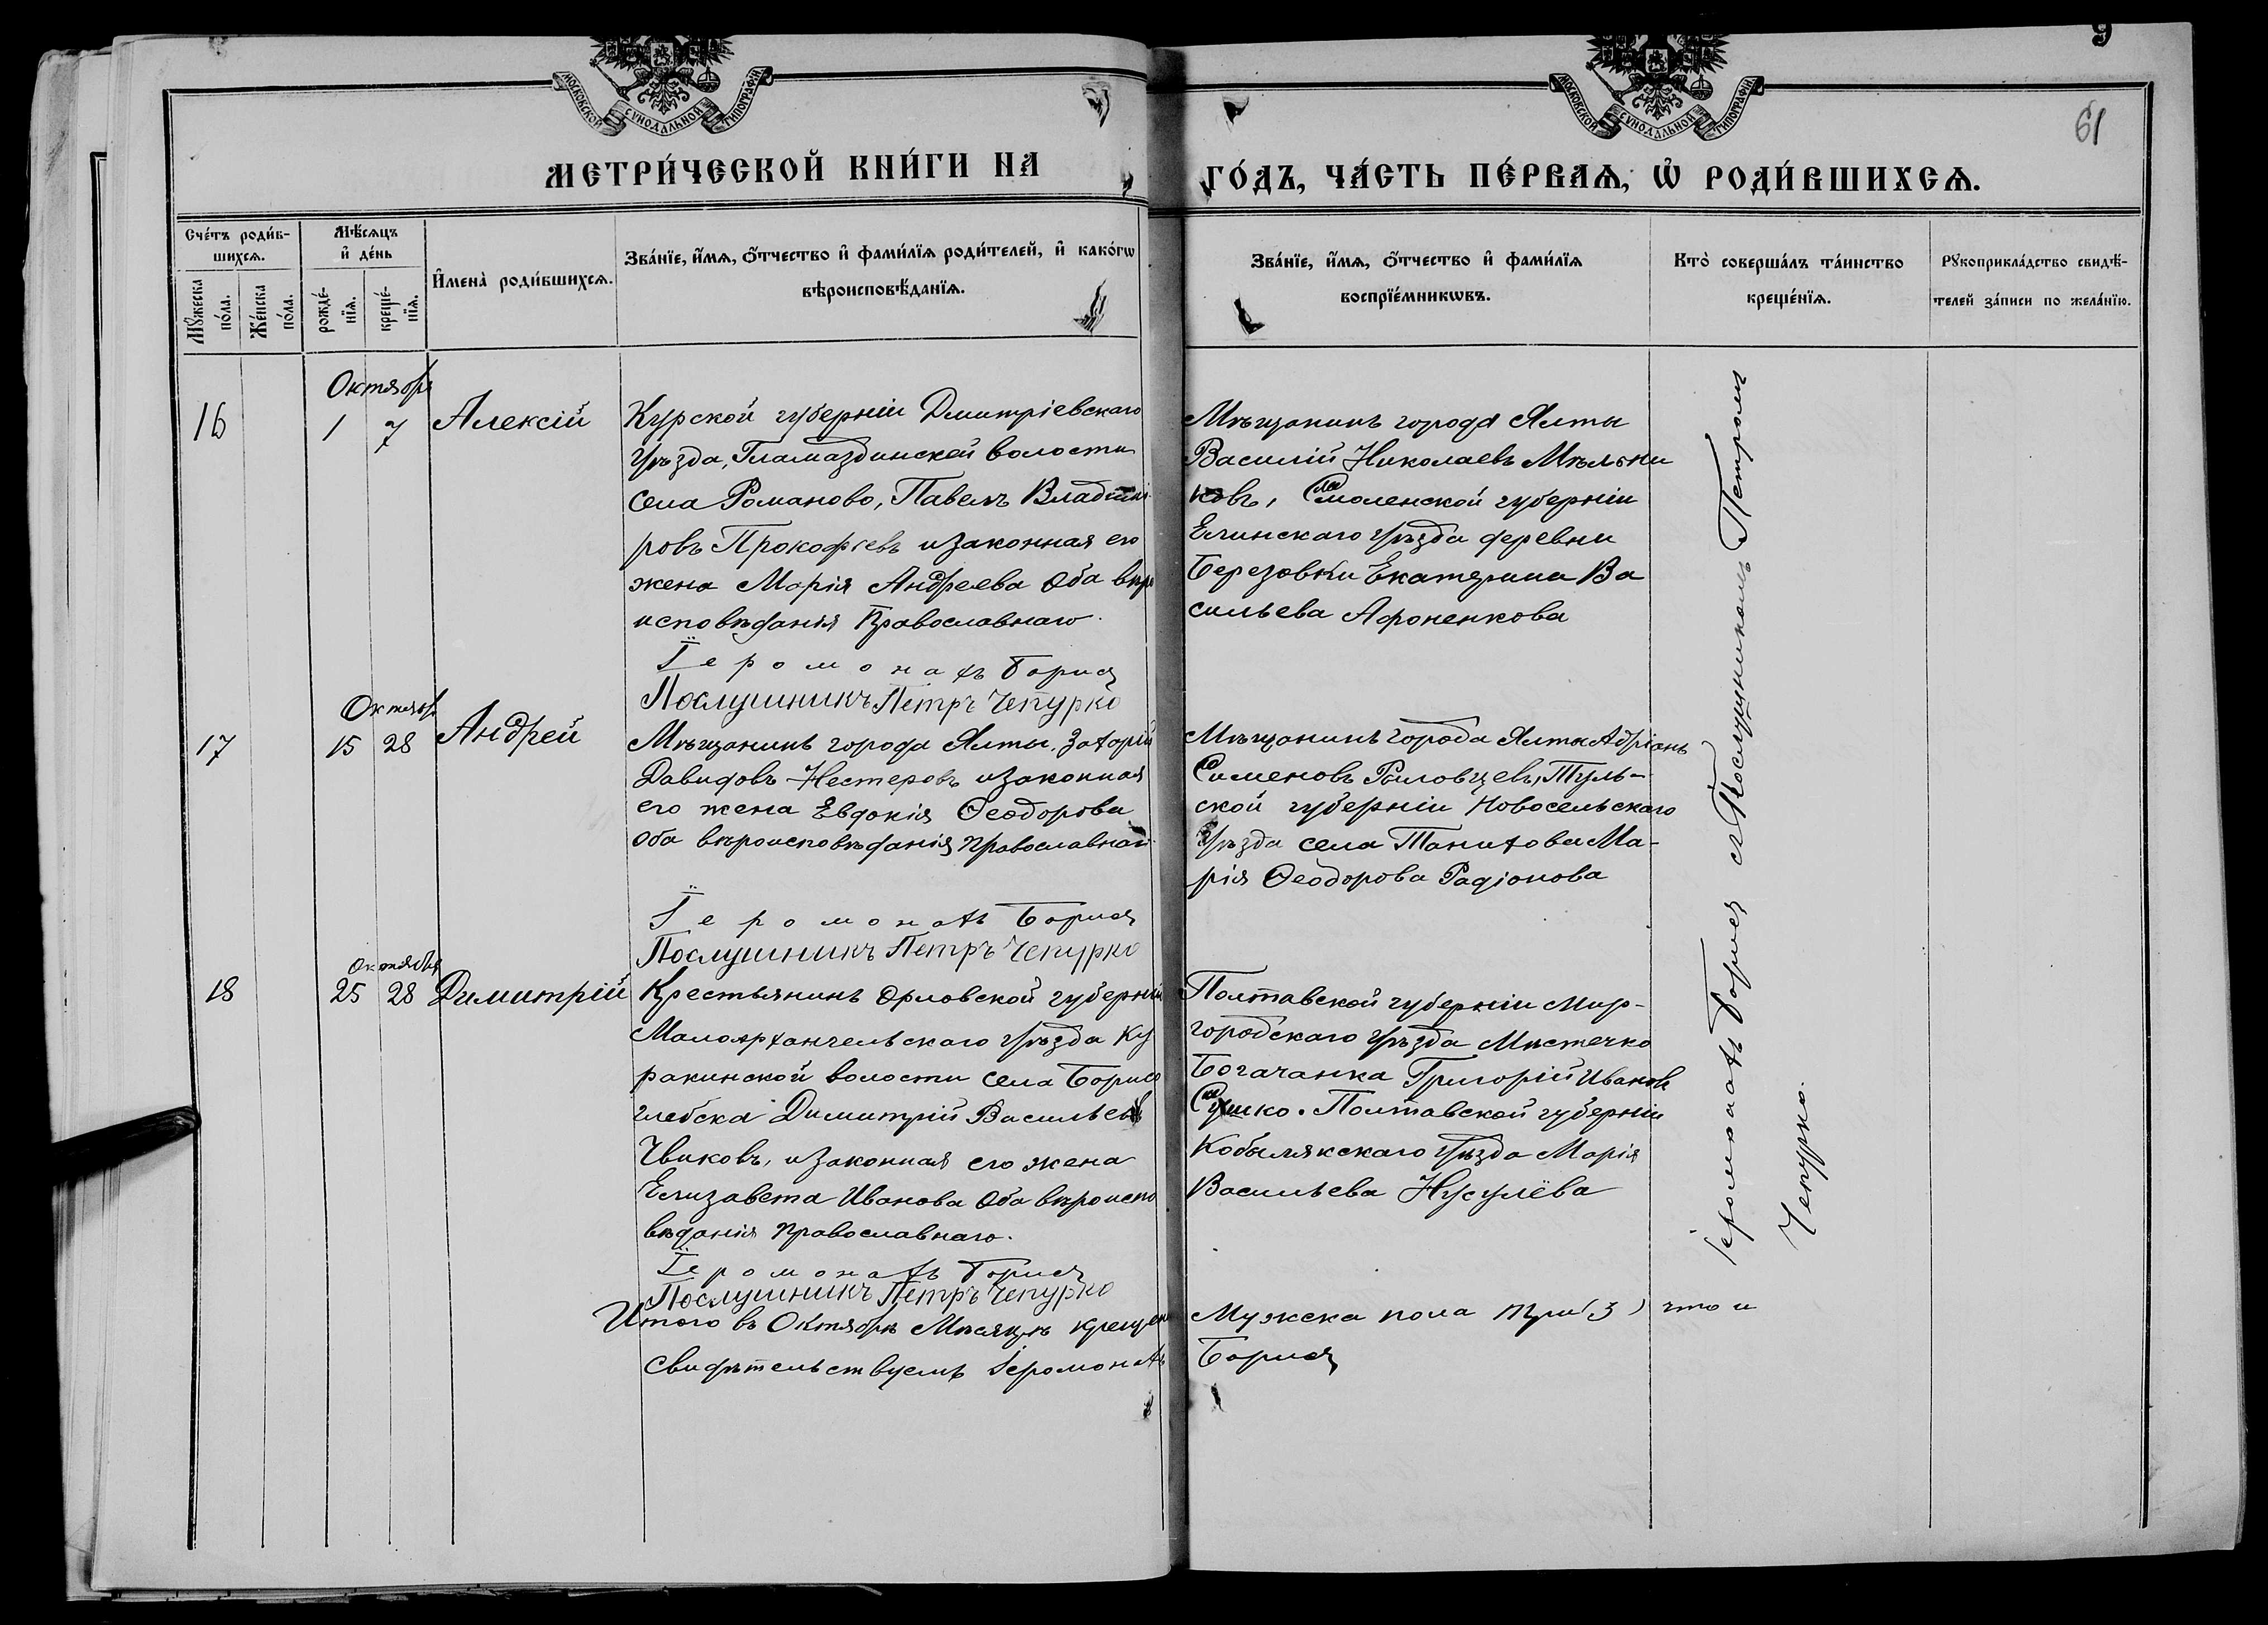 9
61
МОСКОВСКОЙ СѴНОДАЛЬНОЙ ТИПОГРАФІИ
МОСКОВСКОЙ СѴНОДАЛЬНОЙ ТИПОГРАФІИ
МЕТРИ́ЧЕСКОЙ КНИ́ГИ НА
ГО́ДЪ, ЧА́СТЬ ПЕ́РВАѦ, Ѡ҆ РОДИ́ВШИХСѦ.
Сче́тъ роди́в-
шихсѧ.
Мꙋ́жеска
по́ла.
Же́нска
по́ла.
Мѣ́сѧцъ
и҆ де́нь
рожде́-
нїѧ.
креще́-
нїѧ.
И҆мена̀ роди́вшихсѧ.
Зва́нїе, и҆́мѧ, ѻ҆́тчество и҆ фами́лїѧ роди́телей, и҆ како́гѡ
вѣроисповѣ́данїѧ.
Зва́нїе, и҆́мѧ, ѻ҆́тчество и҆ фами́лїѧ
воспрїе́мникѡвъ.
Кто̀ соверша́лъ та́инство
креще́нїѧ.
Рꙋкоприкла́дство свидѣ́-
телей за́писи по жела́нїю.
Октября
16
1
7
Алексій
Курской губерніи Дмитріевскаго
уѣзда, Гламаздинской волости
села Романово, Павелъ Владимі
ровъ Прокофіевъ и законная его
жена Марія Андреева оба вѣро
исповѣданія Православнаго.
Іеромонахъ Борисъ
Послушникъ Петръ Чепурко
Мѣщанинъ города Ялты
Василій Николаевъ Мѣльни
ковъ, Смоленской губерніи
Елинскаго уѣзда деревни
Березовки Екатерина Ва
сильева Афоненкова
Октября
17
15
28
Андрей
Мѣщанинъ города Ялты, Захарій
Давидовъ Нестеровъ и законная
его жена Евдокія Ѳеодорова
оба вѣроисповѣданія православнаго
Іеромонахъ Борисъ
Послушникъ Петръ Чепурко
Мѣщанинъ города Ялты Адріанъ
Сименовъ Рыловцевъ, Туль-
ской губерніи Новосельскаго
уѣзда села Ма-
рія Ѳеодорова Радіонова
Октября
18
25
28
Димитрій
Крестьянинъ Орловской губерніи
Малоархангельскаго уѣзда Ку
ракинской волости села Борисо
глебска Димитрій Васильевъ
Чвиковъ, и законная его жена
Елизавета Иванова оба вѣроиспо
вѣданія православнаго.
Іеромонахъ Борисъ
Послушникъ Петръ Чепурко
Полтавской губерніи Мир-
городскаго уѣзда Мѣстечко
Богачанка Григорій Ивановъ
Сушко. Полтавской губерніи
Кобылякскаго уѣзда Марія
Васильева
Іеромонахъ Борисъ съ Послушникомъ Петромъ
Чепурко.
Итого въ Октябрѣ Мѣсяцѣ крещено Мужска пола три (3) что и
свидѣтельствуемъ Іеромонахъ Борисъ